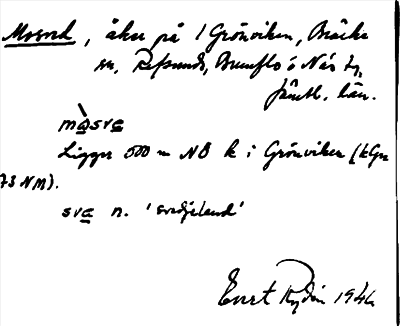 Mosved, åker på 1 Grönviken, Bräcke
sn, Refsunds, Brunflo o Näs tg,
Jämtl. län.
måsvе
Ligger 500 m NÖ k i Grönviken (kGrv
73 NM).
sve n. 'svedjeland'
Evert Rydén 1946